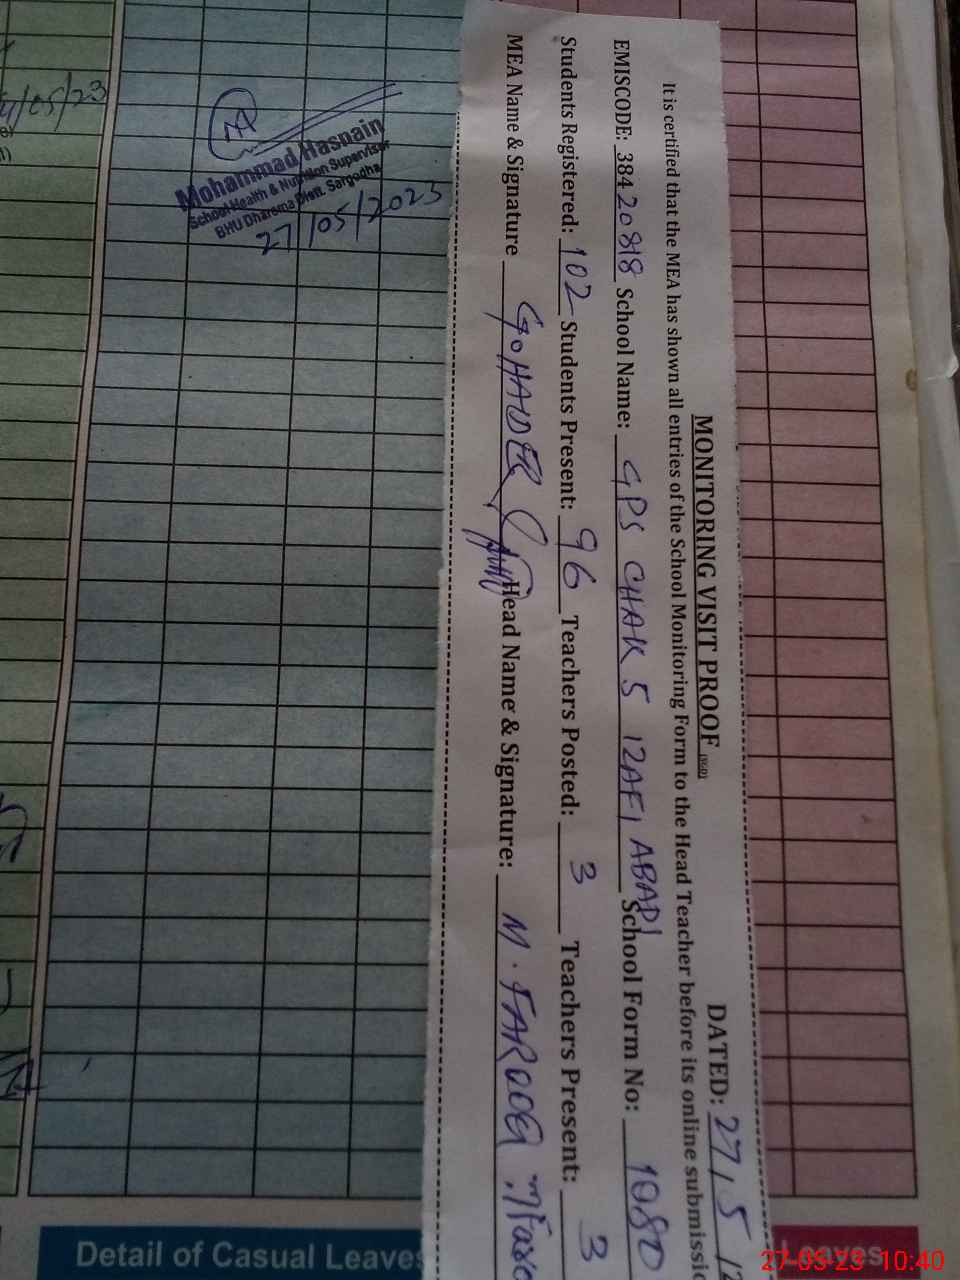 MONITORING VISIT PROOF
DATED: 27/5/
It is certified that the MEA has shown all entries of the School Monitoring Form to the Head Teacher before its online submissi
EMISCODE: 38420818 School Name: GPS CHAK 5 12AFI ABADI School Form No: 1080
Students Registered: 102 Students Present: 96 Teachers Posted: 3 Teachers Present: 3
MEA Name & Signature G.HAIDER Head Name & Signature: M. FAROOQ
Mohammad Hasnain
School Health & Nutrition Supervisor
BHU Dharema Distt. Sargodha
27/05/2023
/05/23
Detail of Casual Leaves
Leaves
27-05-23 10:40